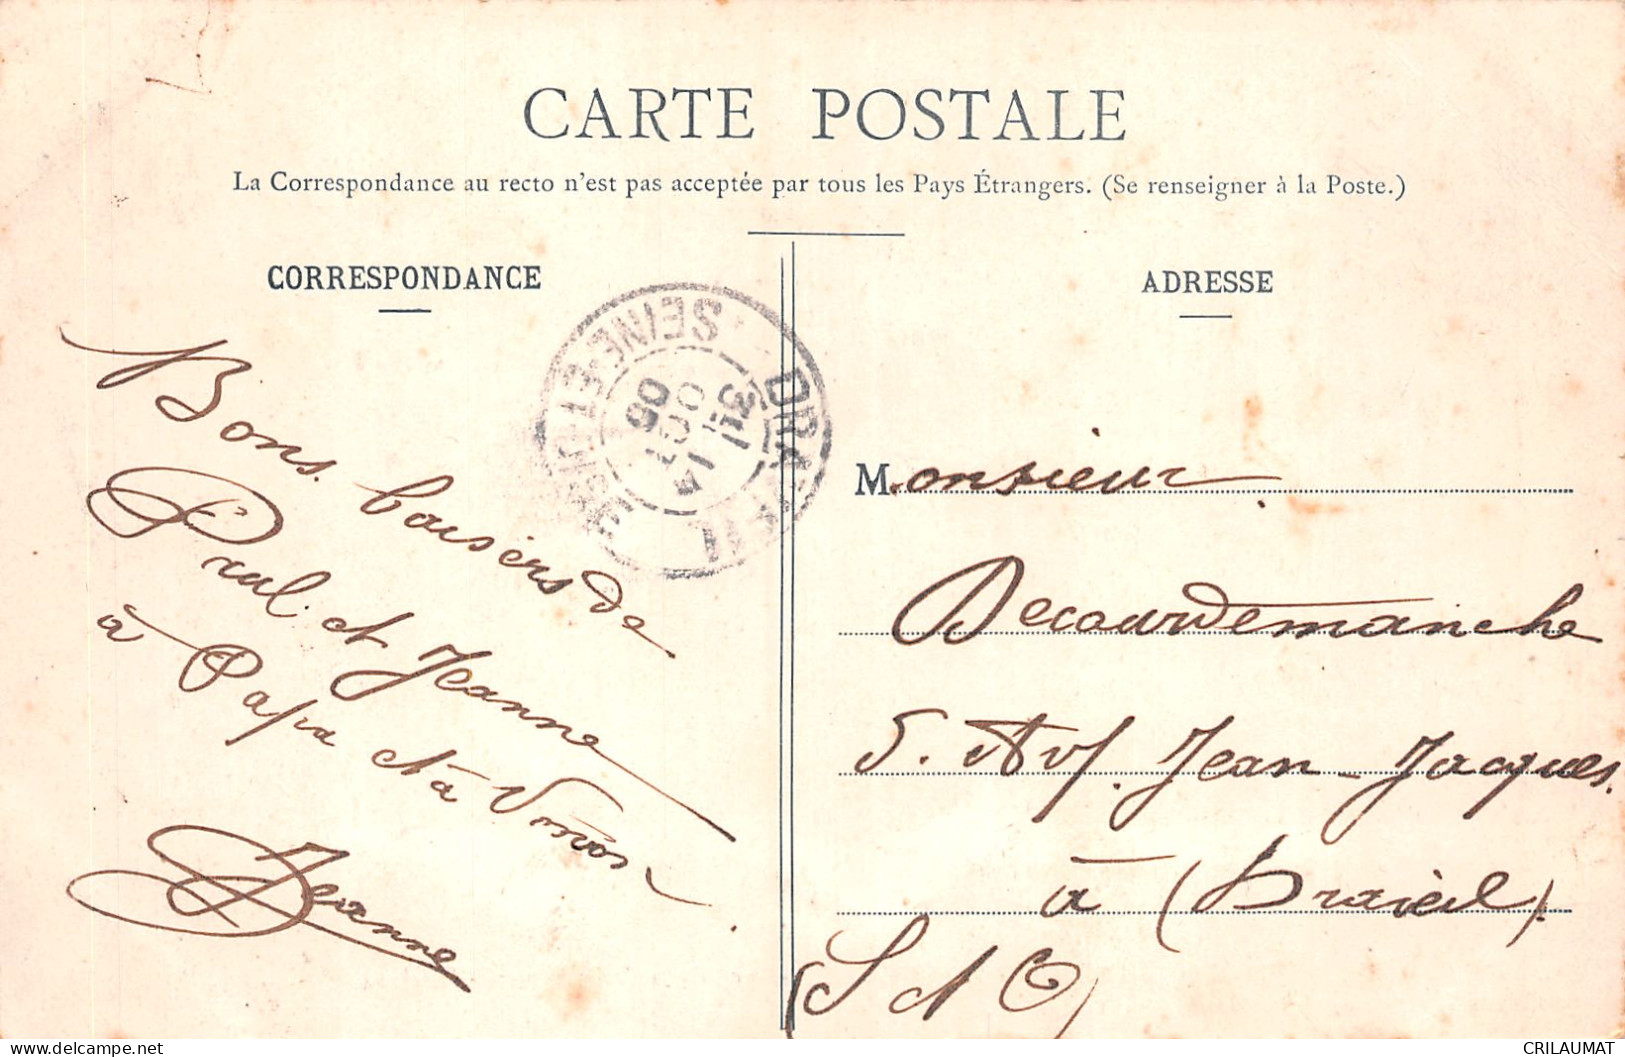 CARTE POSTALE
La Correspondance au recto n'est pas acceptée par tous les Pays Étrangers. (Se renseigner à la Poste.)
CORRESPONDANCE
Bons baisers de
Paul et Jeanne
à Papa et à
Jeanne
SEINE-ET-OISE
14
OCT
06
ADRESSE
Monsieur
Decourdemanche
5. Av. Jean-Jacques
à (Draveil)
(S et O)
CRILAUMAT